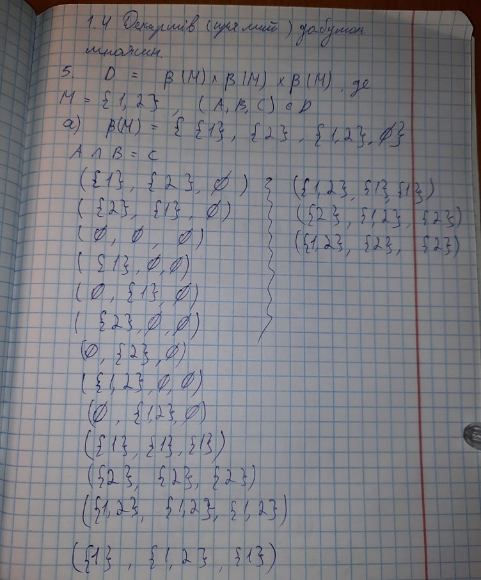 1.4 Декартів (прямий) добуток
множин.
5. D = β(M) × β(M) × β(M), де
M = {1,2}, (A, B, C) ∈ D
а) β(M) = { {1}, {2}, {1,2}, ∅}
A ∩ B = C
({1}, {2}, ∅)
({2}, {1}, ∅)
(∅, ∅, ∅)
({1}, ∅, ∅)
(∅, {1}, ∅)
({2}, ∅, ∅)
(∅, {2}, ∅)
({1,2}, ∅, ∅)
(∅, {1,2}, ∅)
({1}, {1}, {1})
({2}, {2}, {2})
({1,2}, {1,2}, {1,2})
({1}, {1,2}, {1})
({1,2}, {1}, {1})
({2}, {1,2}, {2})
({1,2}, {2}, {2})